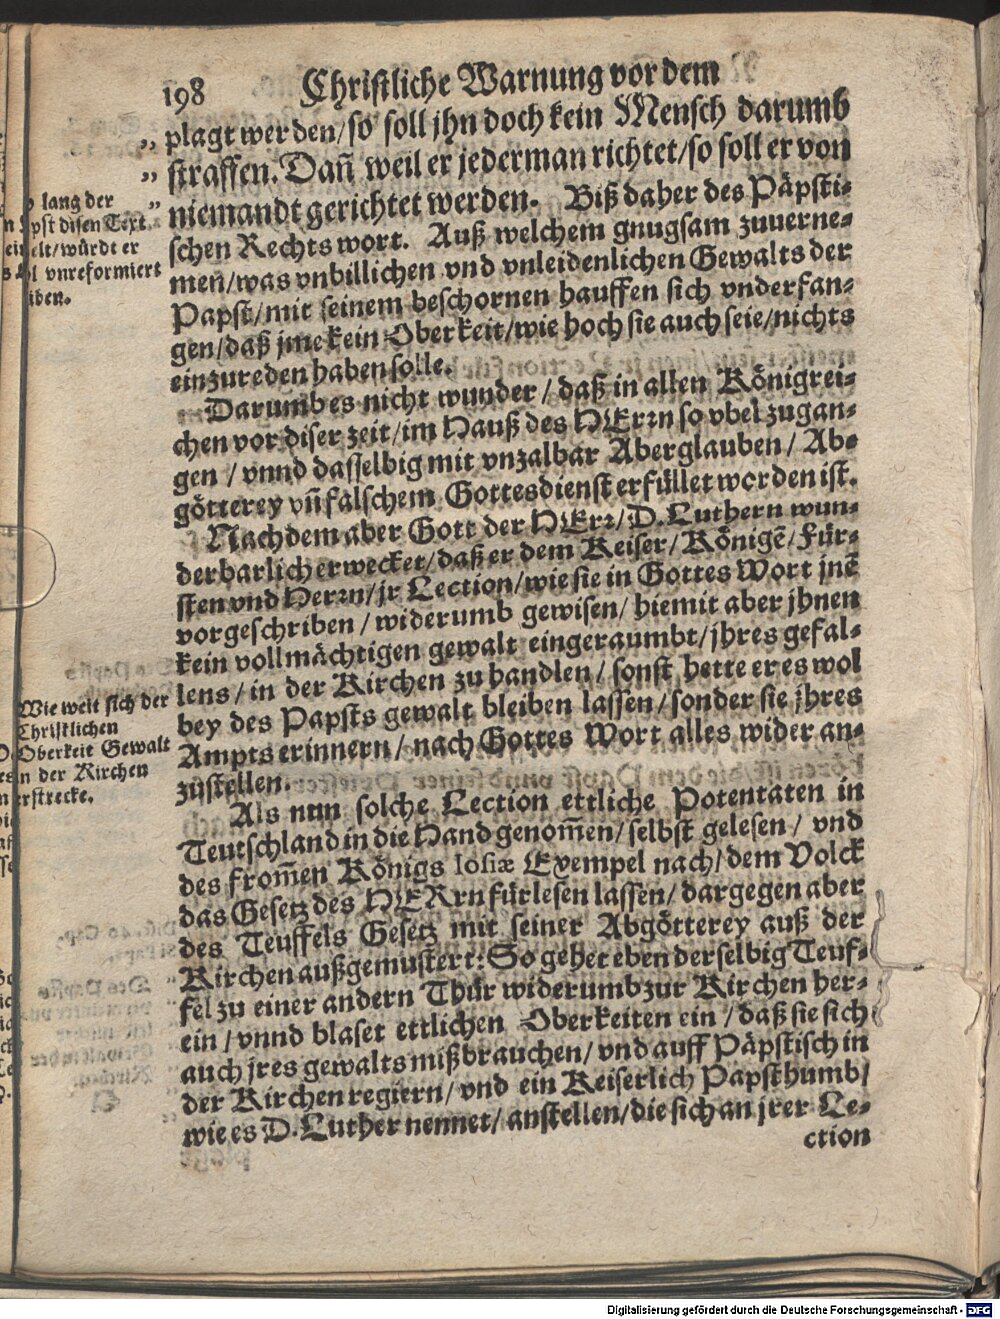 198 Christliche Warnung vor dem
„ plagt werden/so soll jhn doch kein Mensch darumb
„ straffen. Dañ weil er jederman richtet/so soll er von
„ niemandt gerichtet werden. Biß daher des Päpsti-
schen Rechts wort. Auß welchem gnugsam zuuerne-
men/was vnbillichen vnd vnleidenlichen Gewalts der
Papst/mit seinem beschornen hauffen sich vnderfan-
gen/daß jme kein Oberkeit/wie hoch sie auch seie/nichts
einzureden haben solle.
lang der
pst disen Text
elt/würdt er
vnreformiert
iben.
Darumb es nicht wunder/daß in allen Königrei-
chen vor diser zeit/im Hauß des HErrn so vbel zugan-
gen/vnnd dasselbig mit vnzalbar Aberglauben/Ab-
götterey vñ falschem Gottesdienst erfüllet worden ist.
Nachdem aber Gott der HErr/D. Luthern wun-
derbarlich erwecket/daß er dem Keiser/Königē/Für-
sten vnd Herrn/jr Lection/wie sie in Gottes Wort jnē
vorgeschriben/widerumb gewisen/hiemit aber jhnen
kein vollmächtigen gewalt eingeraumbt/jhres gefal-
lens/in der Kirchen zu handlen/sonst hette er es wol
bey des Papsts gewalt bleiben lassen/sonder sie jhres
Ampts erinnern/nach Gottes Wort alles wider an-
zůstellen.
Wie weit sich der
Christlichen
Oberkeit Gewalt
in der Kirchen
erstrecke.
Als nun solche Lection ettliche Potentaten in
Teutschland in die Hand genom̃en/selbst gelesen/vnd
des from̃en Königs Iosiæ Exempel nach/dem Volck
das Gesetz des HERrn fürlesen lassen/dargegen aber
des Teuffels Gesetz mit seiner Abgötterey auß der
Kirchen außgemustert: So gehet eben derselbig Teuf-
fel zu einer andern Thür widerumb zur Kirchen her-
ein/vnnd blaset ettlichen Oberkeiten ein/daß sie sich
auch jres gewalts mißbrauchen/vnd auff Päpstisch in
der Kirchen regiern/vnd ein Keiserlich Papsthumb/
wie es D. Luther nennet/anstellen/die sich an jrer Le-
ction
Digitalisierung gefördert durch die Deutsche Forschungsgemeinschaft - DFG